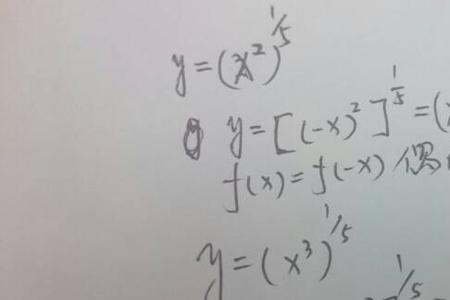 y=(x²)^1/5
y=[(-x)²]^1/5=(
f(x)=f(-x) 偶
y=(x³)^1/5
1/5